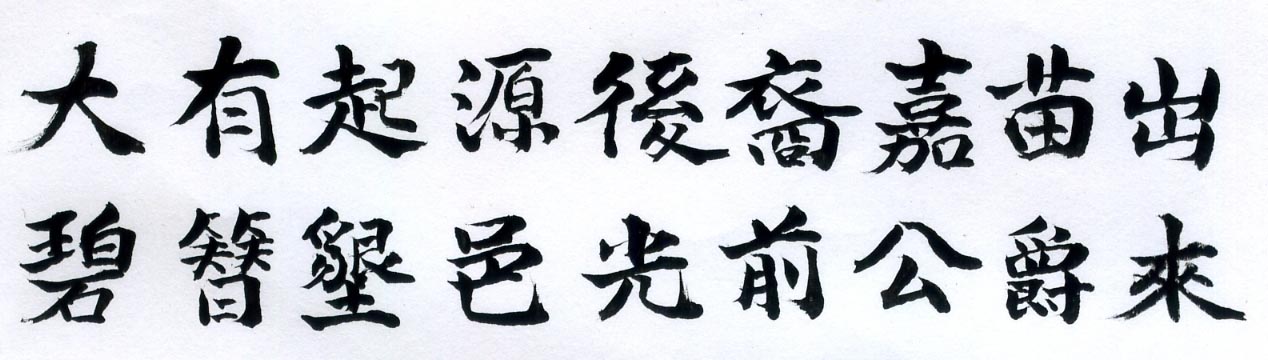 大有起源後裔嘉苗出
碧簪墾邑光前公爵來